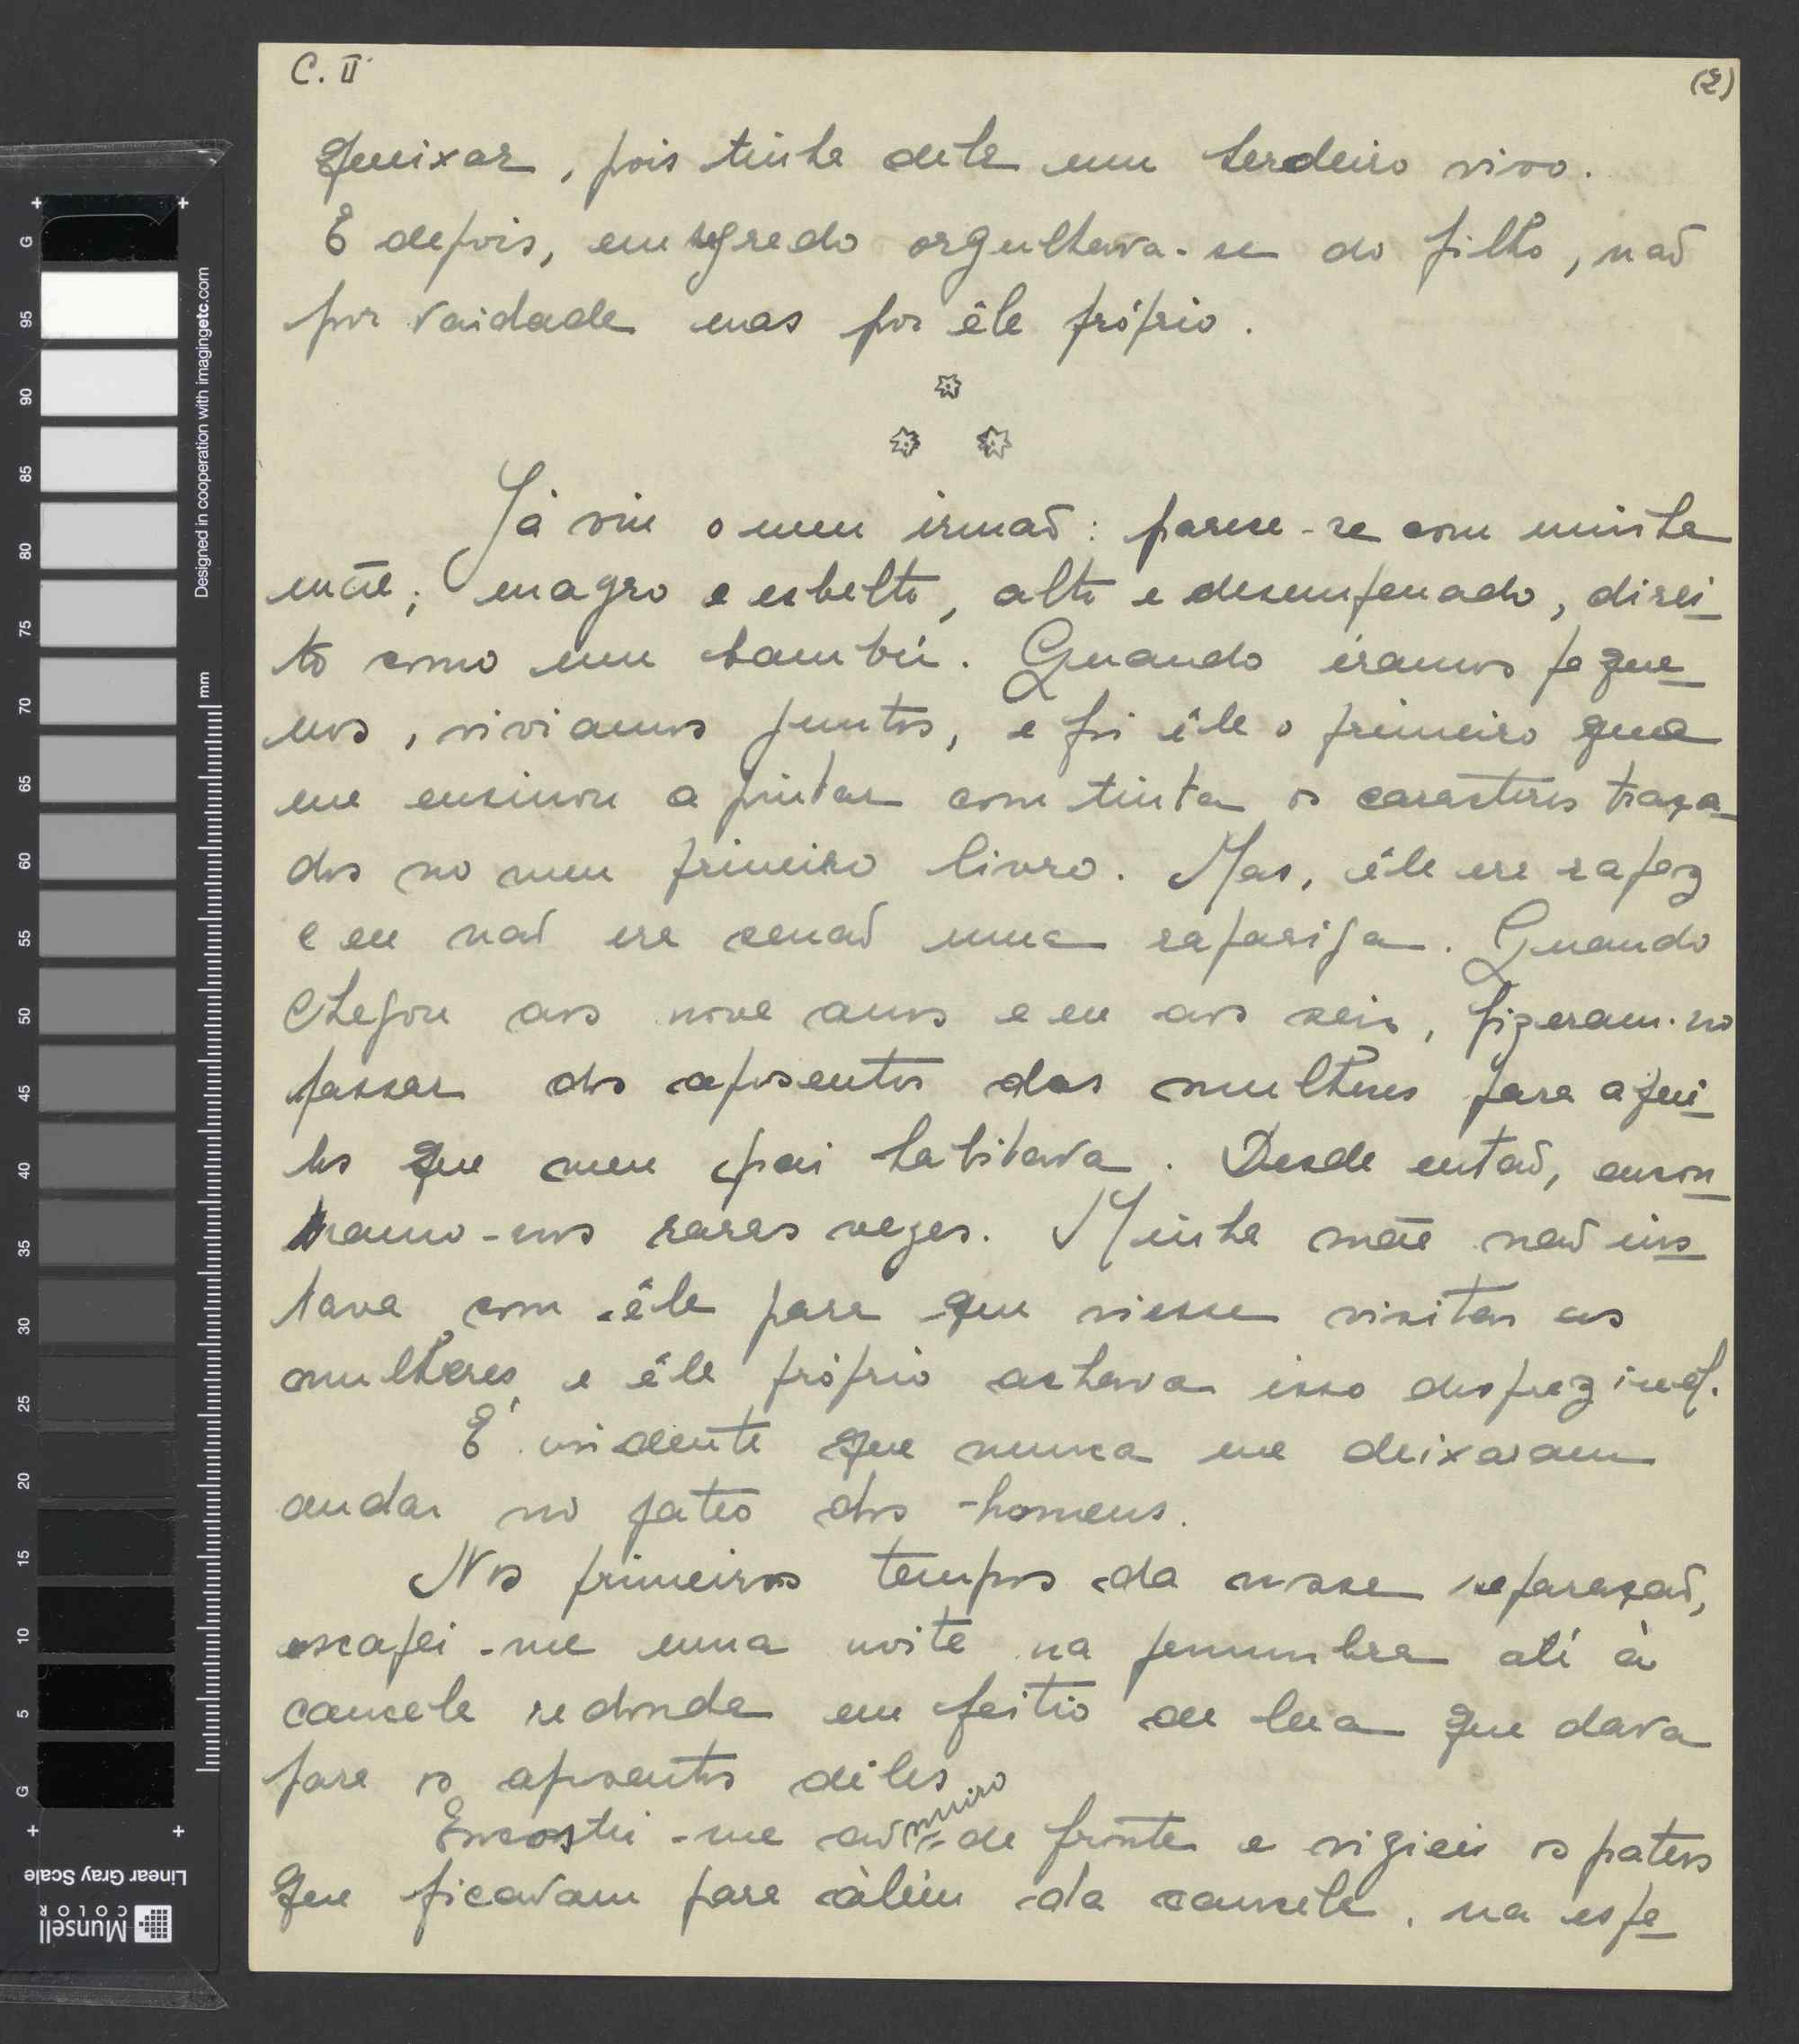 C. II
(2)
queixar, pois tinha dele um herdeiro vivo.
E depois, em segredo orgulhava-se do filho, não
por vaidade mas por êle próprio.
Já vim o meu irmão: parece-se com minha
mãe; magro e esbelto, alto e desempenado, direi-
to como um bambú. Quando éramos peque-
nos, viviamos juntos, e foi êle o primeiro que
me ensinou a pintar com tinta os caracteres traça-
dos no meu primeiro livro. Mas, êle era rapaz
e eu não era senão uma rapariga. Quando
chegou aos nove anos e eu aos seis, fizeram-no
passar dos aposentos das mulheres para aquê-
les que meu pai habitava. Desde então, encon-
tramo-nos raras vezes. Minha mãe não ins-
tava com êle para que viesse visitar as
mulheres, e êle próprio achava isso desprezivel.
É evidente que nunca me deixaram
andar no pateo dos homens.
Nos primeiros tempos da nossa separação,
escapei-me uma noite na penumbra até à
cancela redonda em feitio de lua que dava
para os aposentos dêles
Encostei-me ao muro de fronte e vigiei os pateos
que ficavam para àlém da cancela, na espe-
Designed in cooperation with imagingetc.com
mm
G
95
90
85
80
75
70
65
60
55
50
45
40
35
30
25
20
15
10
5
G
Linear Gray Scale
Munsell
COLOR